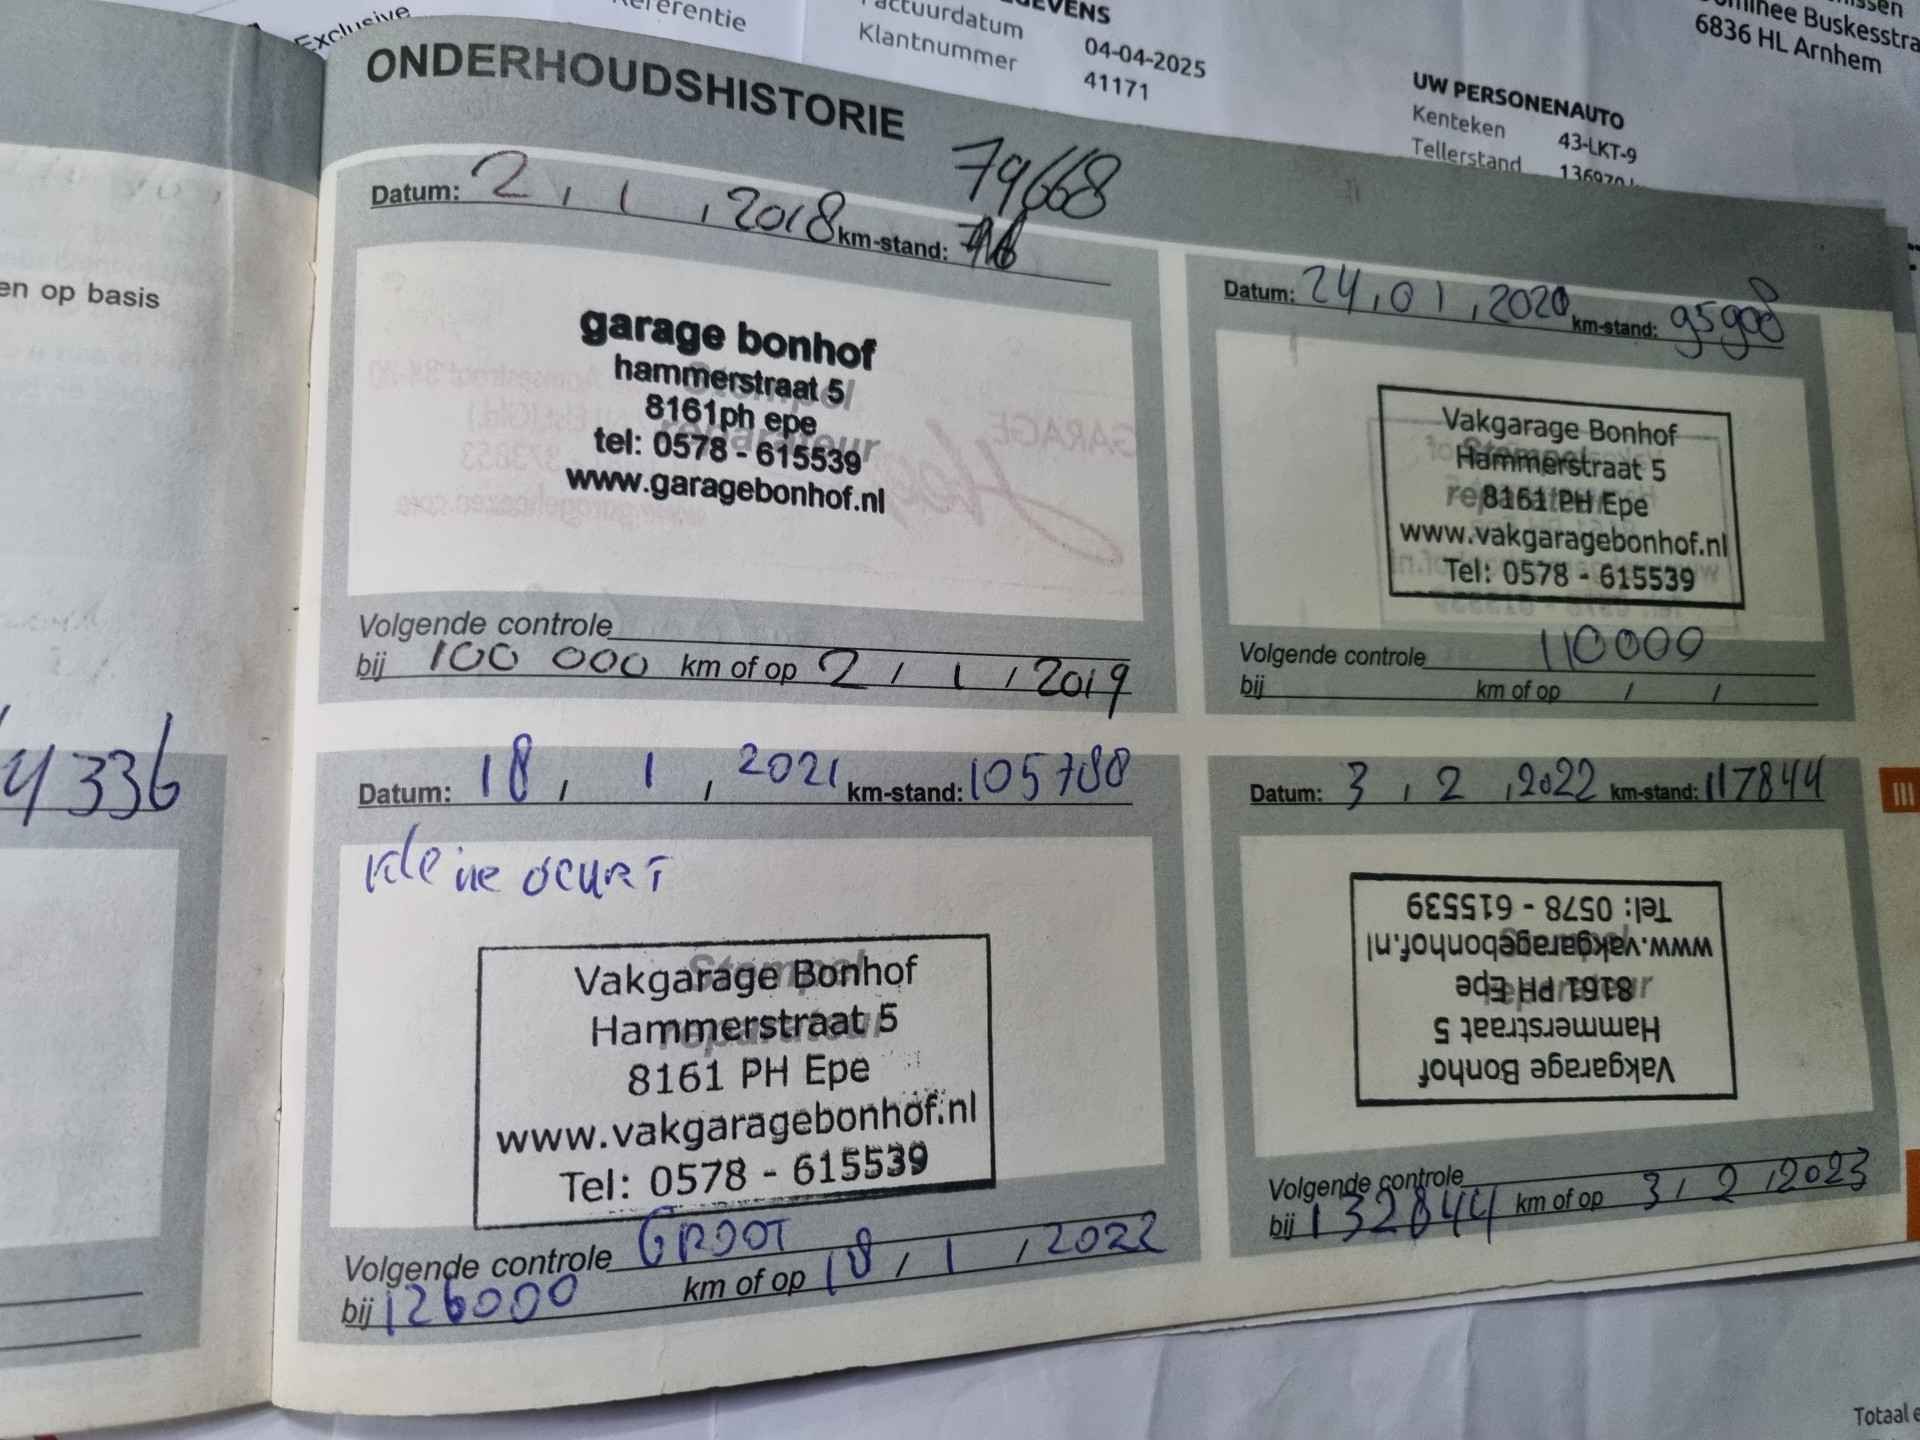 Exclusive
Referentie
Factuurdatum 04-04-2025
Klantnummer 41171
6836 HL Arnhem
UW PERSONENAUTO
Kenteken 43-LKT-9
Tellerstand 136970
en op basis
4336
ONDERHOUDSHISTORIE
79668
Datum: 2, 1, 2018 km-stand:
garage bonhof
hammerstraat 5
Stempel
8161ph epe
reparateur
tel: 0578 - 615539
www.garagebonhof.nl
Volgende controle
bij 100 000 km of op 2 / 1 / 2019
Datum: 24, 01, 2020 km-stand: 95908
Vakgarage Bonhof
Stempel
Hammerstraat 5
reparateur
8161 PH Epe
www.vakgaragebonhof.nl
Tel: 0578 - 615539
Volgende controle 110000
bij km of op / /
Datum: 18, 1, 2021 km-stand: 105788
kleine beurt
Stempel
Vakgarage Bonhof
reparateur
Hammerstraat 5
8161 PH Epe
www.vakgaragebonhof.nl
Tel: 0578 - 615539
Volgende controle GROOT
bij 126000 km of op 18 / 1 / 2022
Datum: 3, 2, 2022 km-stand: 117844
Vakgarage Bonhof
Hammerstraat 5
8161 PH Epe
www.vakgaragebonhof.nl
Tel: 0578 - 615539
Volgende controle
bij 132844 km of op 3 / 2 / 2023
III
Totaal